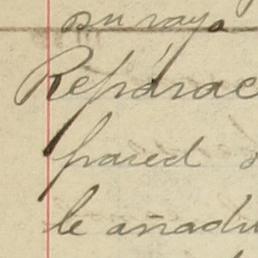 su rayo
Reparac
pared
le añadi